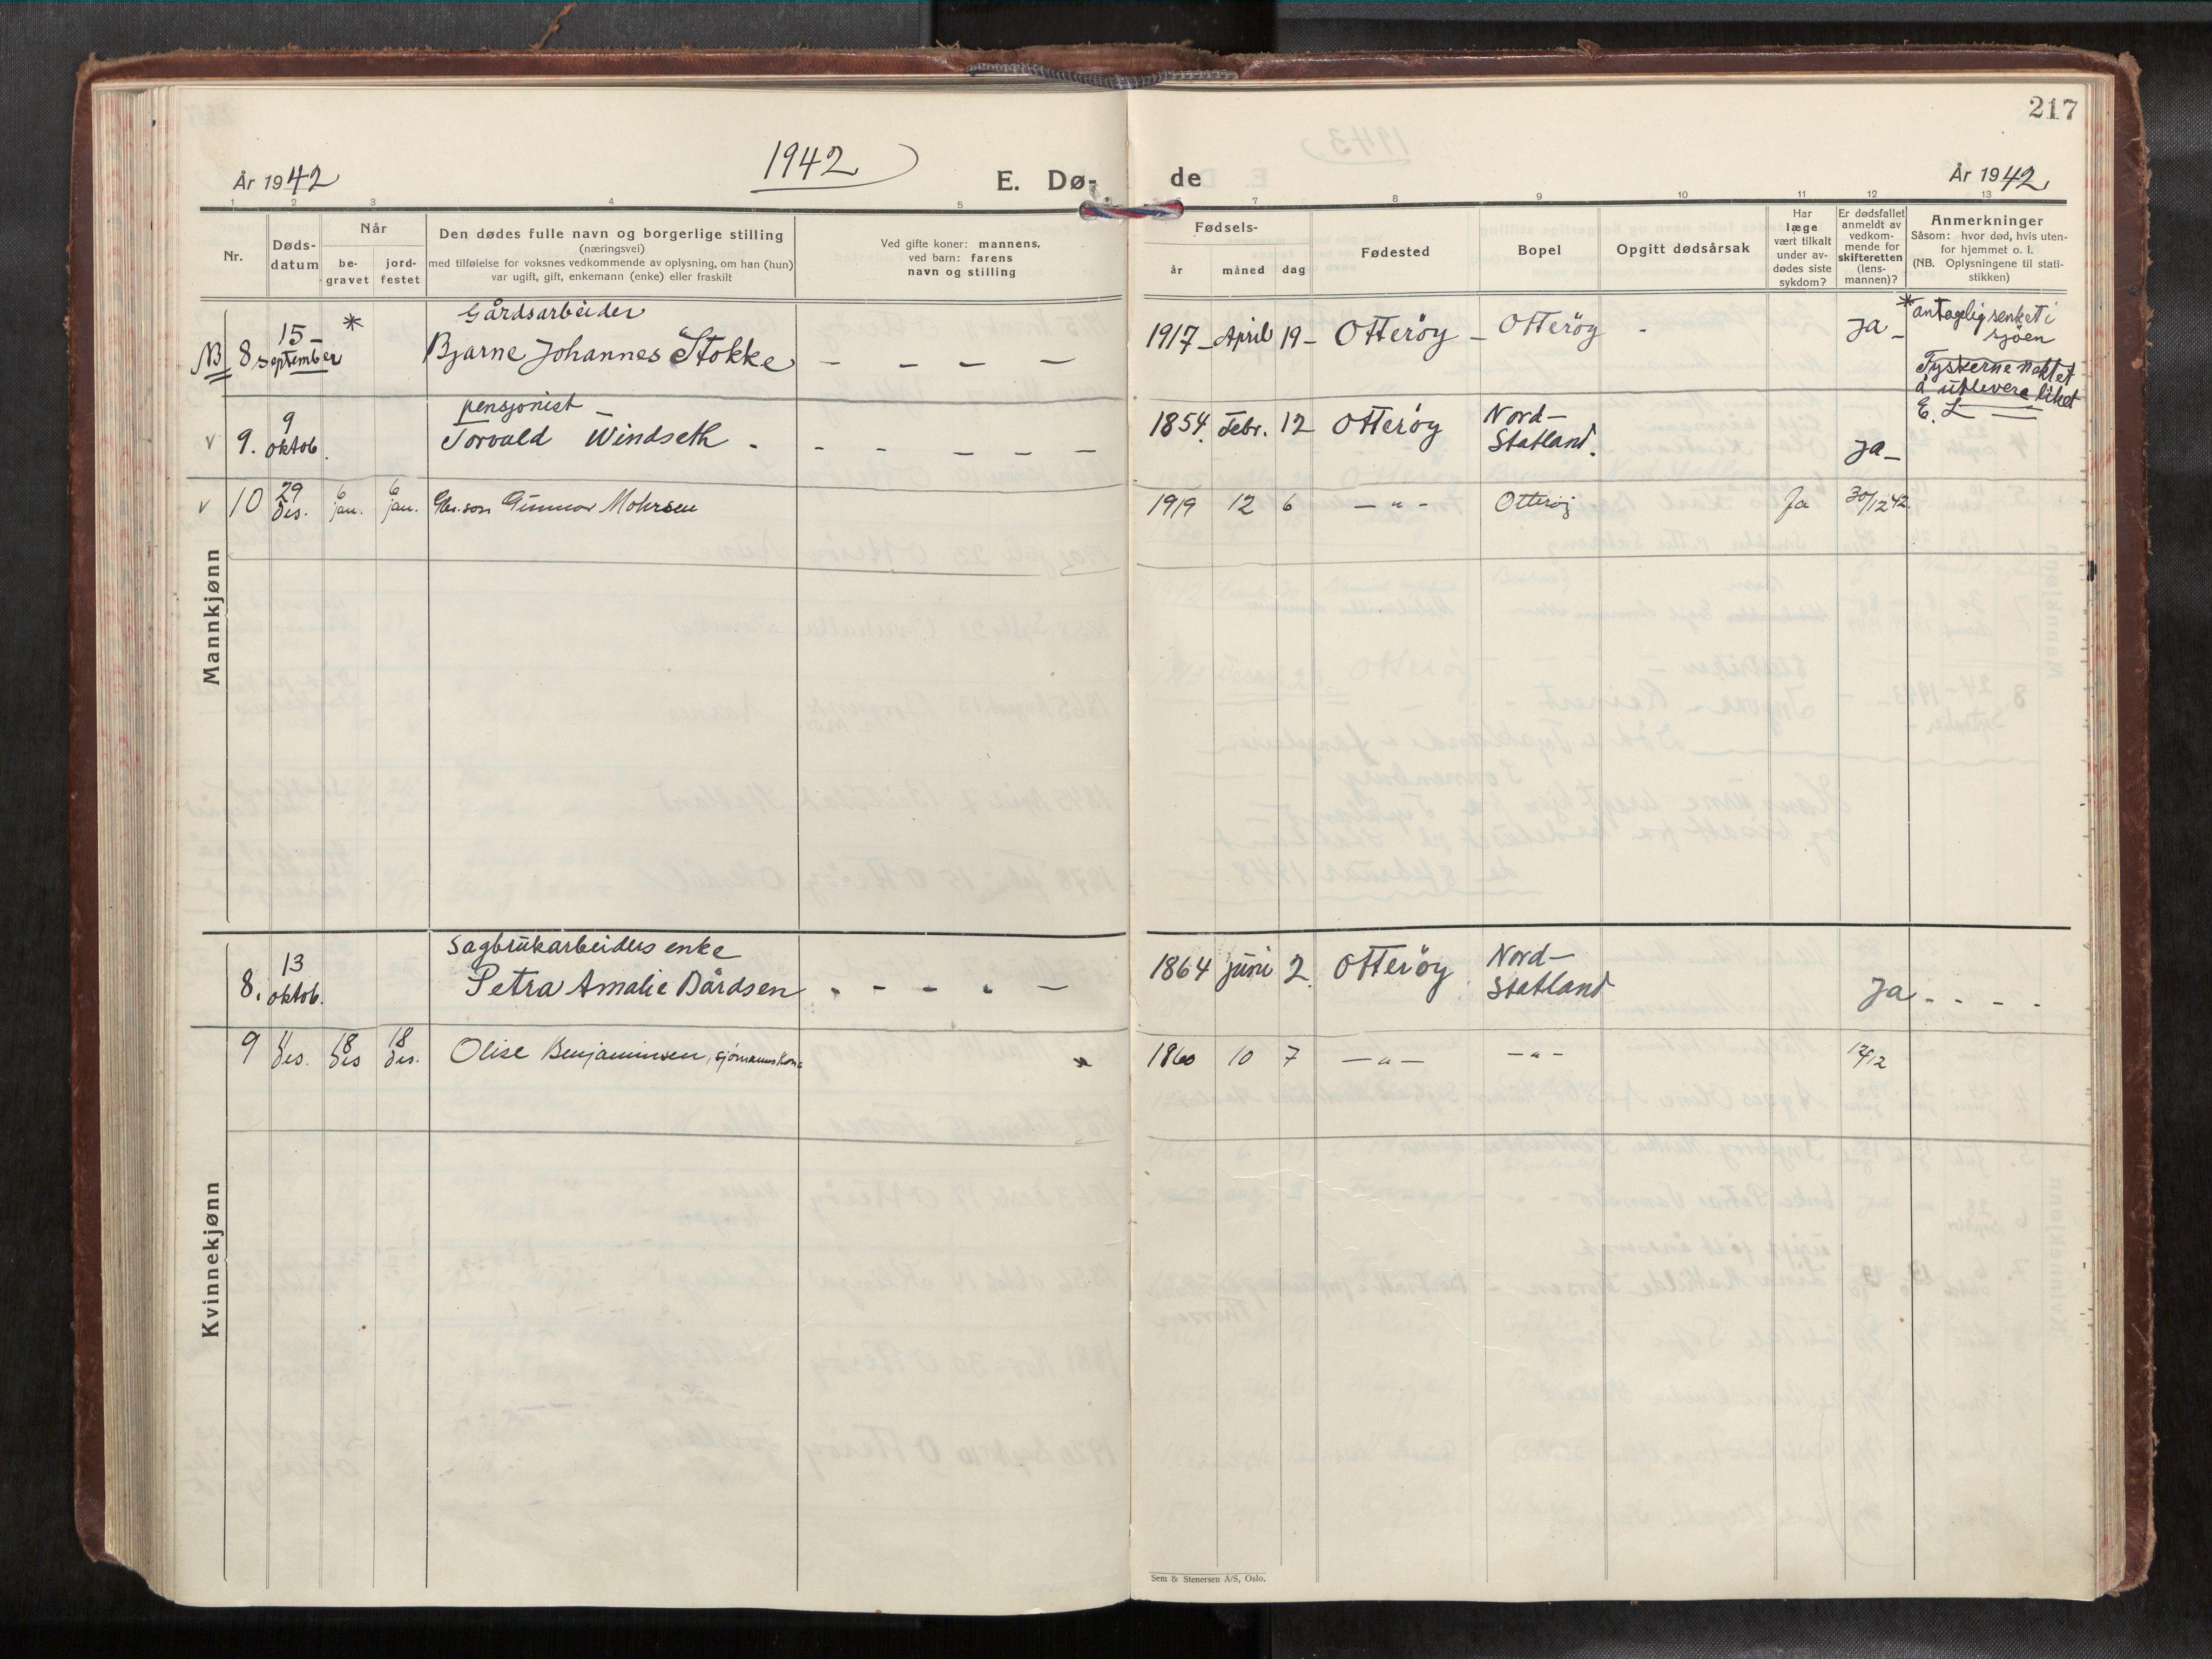 217
1942
År 1942
E. Dø-
de
År 1942
1 2 3 4 5 6 7 8 9 10 11 12 13
Nr.
Døds-
datum
Når
be-
gravet
jord-
festet
Den dødes fulle navn og borgerlige stilling
(næringsvei)
med tilføielse for voksnes vedkommende av oplysning, om han (hun)
var ugift, gift, enkemann (enke) eller fraskilt
Ved gifte koner: mannens,
ved barn: farens
navn og stilling
Fødsels-
år måned dag
Fødested
Bopel
Opgitt dødsårsak
Har
læge
vært tilkalt
under av-
dødes siste
sykdom?
Er dødsfallet
anmeldt av
vedkom-
mende for
skifteretten
(lens-
mannen)?
Anmerkninger
Såsom: hvor død, hvis uten-
for hjemmet o. l.
(NB. Oplysningene til stati-
stikken)
Mannkjønn
Gårdsarbeider
NB 8 15 - september * Bjarne Johannes Stokke - - - - 1917 - April 19 - Otterøy - Otterøy - Ja -
* antagelig senket i
sjøen
Tyskerne nektet
å utlevere liket
E. L
pensjonist
v 9. 9 oktob. Torvald Windseth - - - - - - 1854. Febr. 12 Otterøy Nord-
Statland. Ja -
v 10 29 des. 6 jan. 6 jan. Gbr.son Gunnar Mohrsen 1919 12 6 - " - Otterøy Ja 30/12 42.
Kvinnekjønn
Sagbrukarbeiders enke
8. 13 oktob. Petra Amalie Bårdsen - - - - - 1864 juni 2. Otterøy Nord-
Statland Ja - - - -
9 11 des. 18 des 18 des. Olise Benjaminsen, sjømannskone 1860 10 7 - " - - " - 12/12
Sem & Stenersen A/S, Oslo.